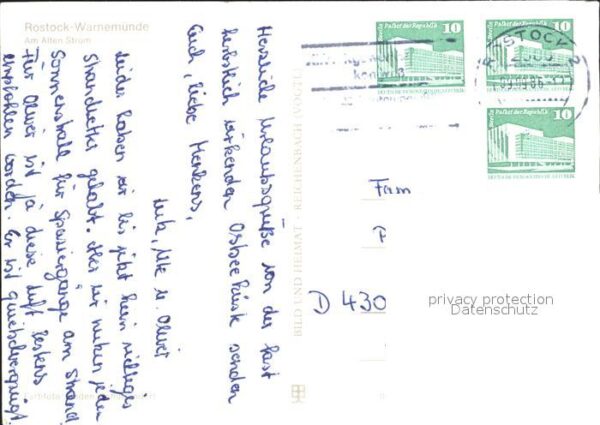 Rostock-Warnemünde
Am Alten Strom
Herzliche Urlaubsgrüße von der fast
herbstlich wirkenden Ostseeküste senden
Euch, liebe
Ute u. Oliver
Leider haben wir bis jetzt kein richtiges
Strandwetter gehabt. Aber wir nutzen jeden
Sonnenstrahl für Spaziergänge am Strand.
Für Oliver ist ja diese Luft bestens
empfohlen worden. Er ist quietschvergnügt.
BILD UND HEIMAT REICHENBACH
Berlin Palast der Republik
10
DEUTSCHE DEMOKRATISCHE REPUBLIK
Berlin Palast der Republik
10
DEUTSCHE DEMOKRATISCHE REPUBLIK
Berlin Palast der Republik
10
DEUTSCHE DEMOKRATISCHE REPUBLIK
ROSTOCK
Fam
D 430
privacy protection
Datenschutz